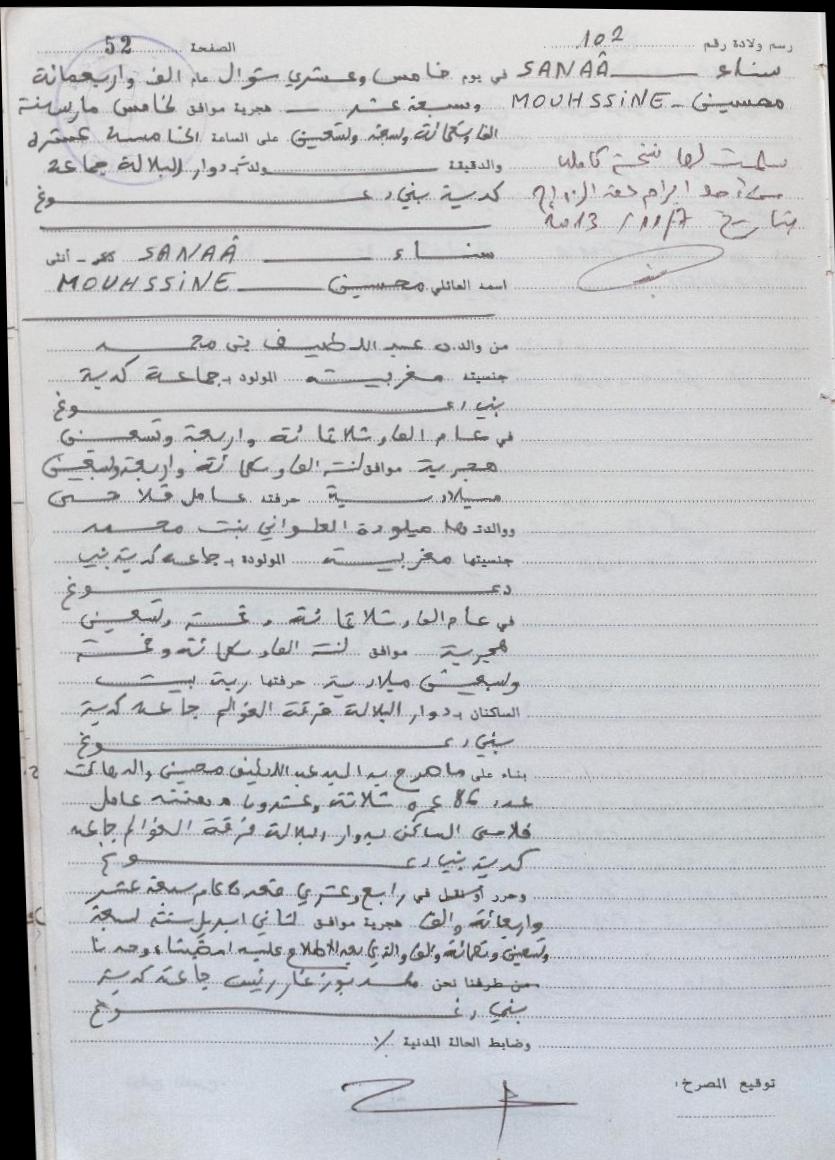 رسم ولادة رقم 102
الصفحة 52
سناء SANAÂ في يوم خامس وعشري شوال عام الف واربعمائة
محسين - MOUHSSINE وسبعة عشر هجرية موافق لخامس مارس سنة
الف وتسعمائة وسبعة وتسعين على الساعة الخامسة عشرة
والدقيقة ولدت بدوار البلالة جماعة
كدية بني دغوغ
سلمت لها نسخة كاملة
من أجل ابرام عقد الزواج
بتاريخ 2013/11/7
سناء SANAÂ ذكر - أنثى
اسمه العائلي محسين MOUHSSINE
من والده عبد اللطيف بن محمد
جنسيته مغربية المولود بـ جماعة كدية
بني دغوغ
في عام الف وثلاثمائة واربعة وتسعين
هجرية موافق لسنة الف وتسعمائة واربعة وسبعين
ميلادية حرفته عامل فلاحي
ووالدتها ميلودة العلواني بنت محمد
جنسيتها مغربية المولودة بـ جماعة كدية بني
دغوغ
في عام الف وثلاثمائة وخمسة وتسعين
هجرية موافق لسنة الف وتسعمائة وخمسة
وسبعين ميلادية حرفتها ربة بيت
الساكنان بـ دوار البلالة فرقة العوالم جماعة كدية
بني دغوغ
بناء على ما صرح به السيد عبد اللطيف محسين والدها
عدد 86 عمره ثلاثة وعشرون مهنته عامل
فلاحي الساكن بدوار البلالة فرقة العوالم جماعة
كدية بني دغوغ
وحرر أو نقل في رابع وعشري قعدة عام سبعة عشر
واربعمائة والف هجرية موافق لثاني ابريل سنة سبعة
وتسعين وتسعمائة والف والذي بعد الاطلاع عليه امضيناه وحدنا
من طرفنا نحن محمد رئيس جماعة كدية
بني دغوغ
وضابط الحالة المدنية
توقيع المصرح: